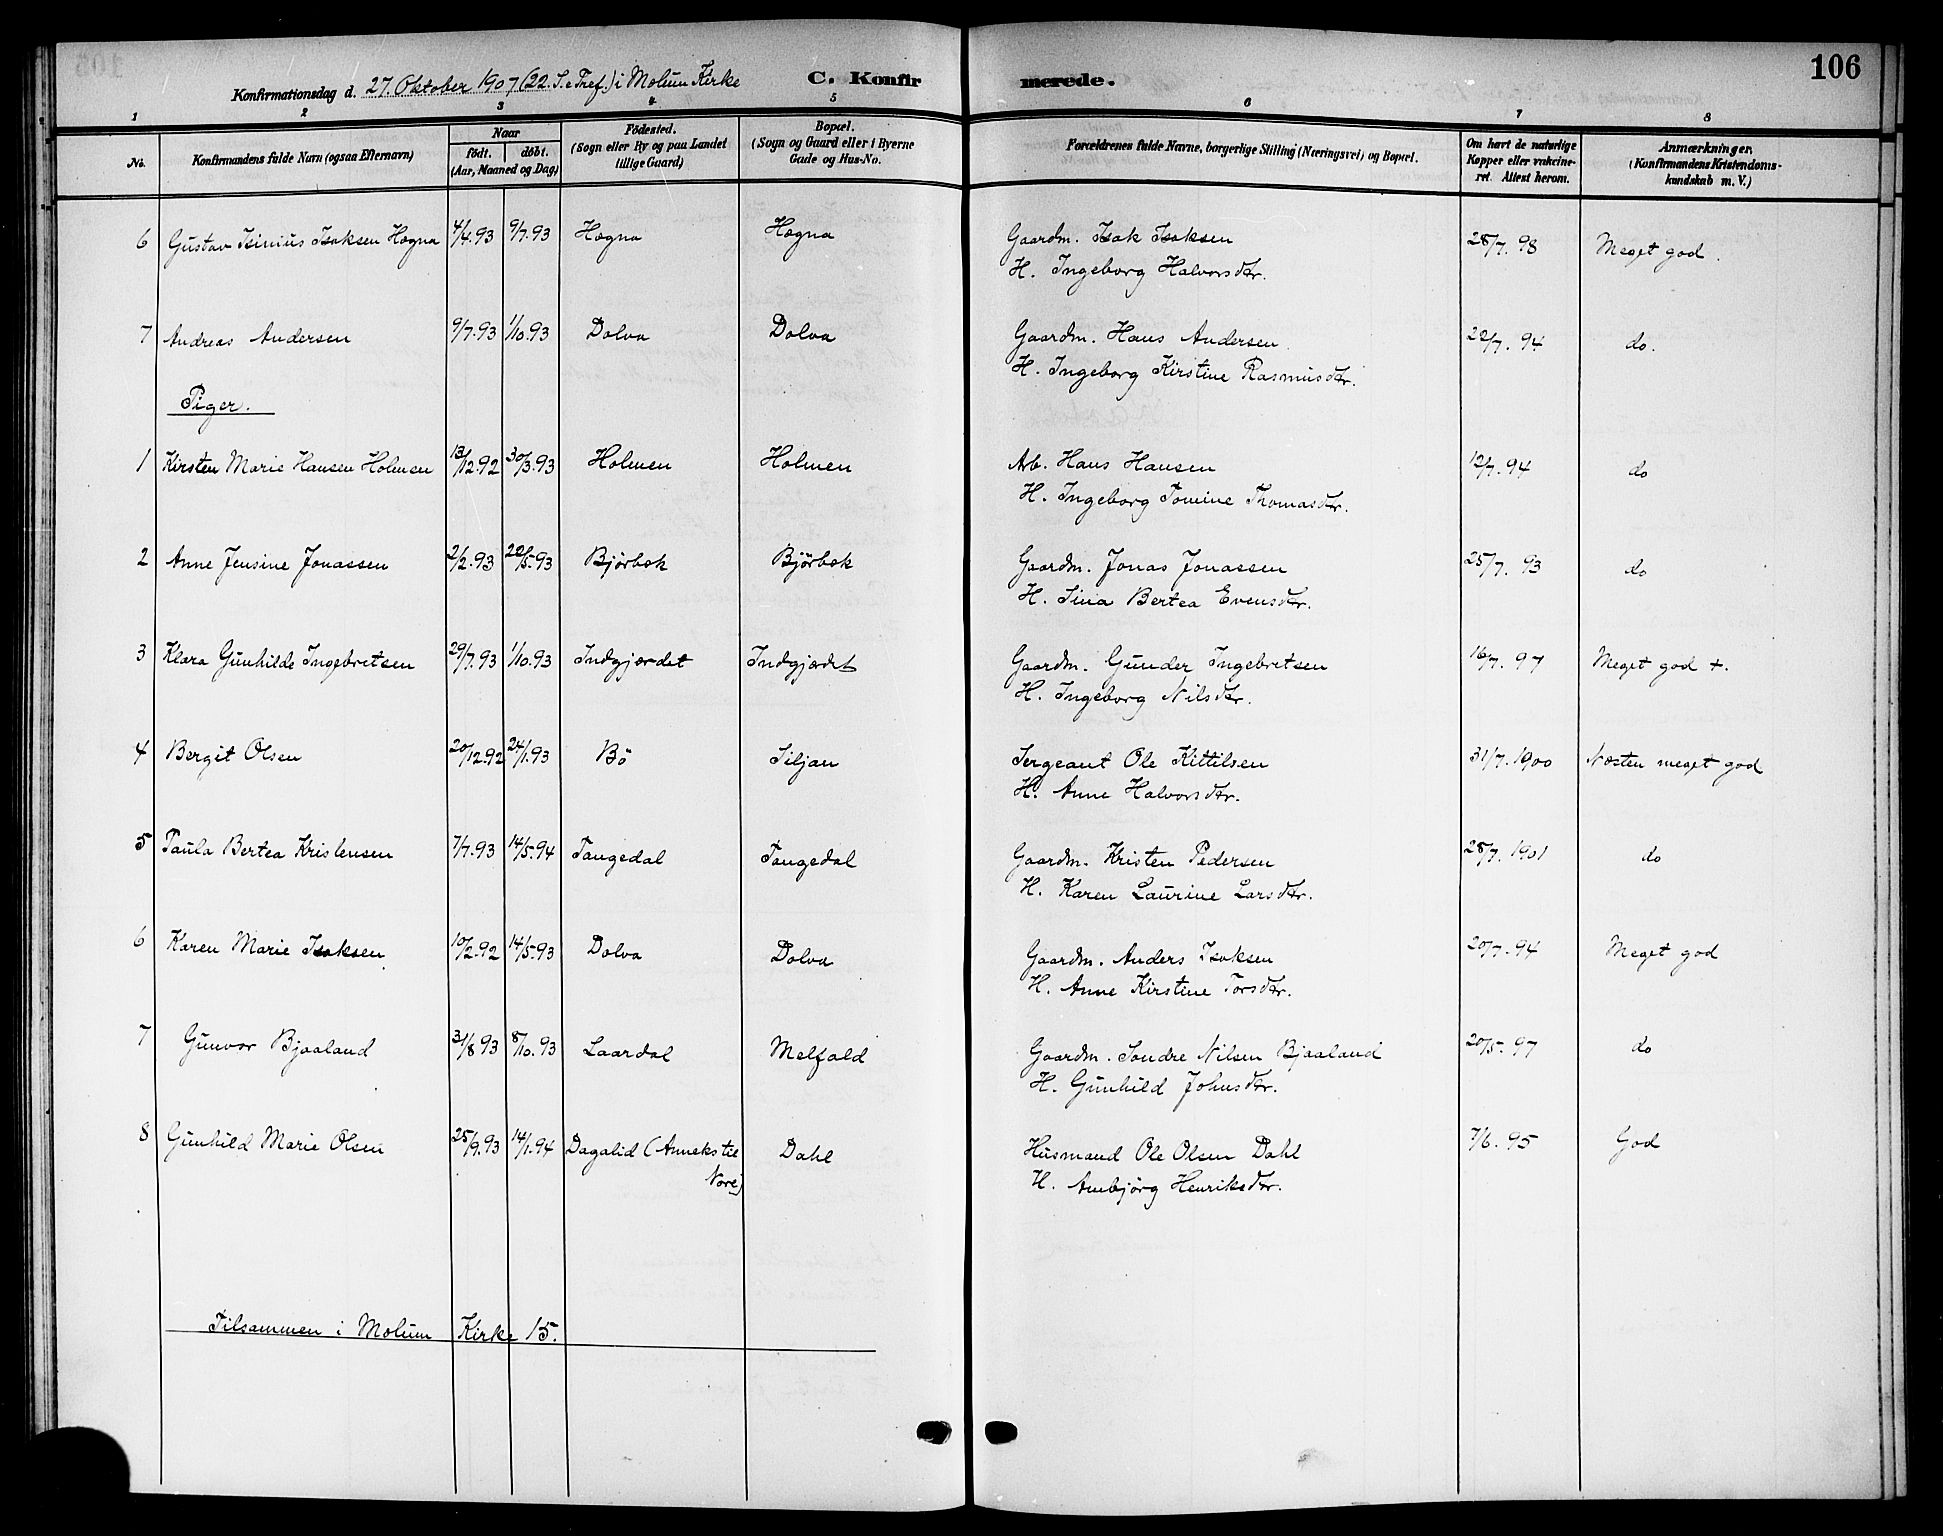 106
Konfirmationsdag d. 27. Oktober 1907 (22. S. e Tref.) i Molum Kirke
C. Konfirmerede.
1 2 3 4 5 6 7 8
No. Konfirmandens fulde Navn (ogsaa Efternavn) Naar født. døbt. (Aar, Maaned og Dag) Fødested. (Sogn eller By og paa Landet tillige Gaard) Bopæl. (Sogn og Gaard eller i Byerne Gade og Hus-No. Forældrenes fulde Navne, borgerlige Stilling (Næringsvei) og Bopæl. Om havt de naturlige Kopper eller vakcineret. Attest herom. Anmærkninger. (Konfirmandens Kristendomskundskab m. V.)
6 Gustav Isinius Isaksen Høgna 4/4.93 9/7.93 Høgna Høgna Gaardm. Isak Isaksen 28/7. 98 Meget god.
H. Ingeborg Halvorsdtr.
7 Andreas Andersen 9/7.93 1/10.93 Dolva Dolva Gaardm. Hans Andersen 22/7. 94 do.
H. Ingeborg Kirstine Rasmusdtr.
Piger.
1 Kirsten Marie Hansen Holmen 13/12.92 30/3.93 Holmen Holmen Arb. Hans Hansen 12/7. 94 do
H. Ingeborg Tomine Thomasdtr.
2 Anne Jensine Jonassen 2/2.93 22/5.93 Bjørbæk Björbæk Gaardm. Jonas Jonassen 25/7. 93 do
H. Sina Bertea Evensdtr.
3 Klara Gunhilde Ingebretsen 29/7.93 1/10.93 Indgjærdet Indgjærdet Gaardm. Gunder Ingebretsen 16/7. 97 Meget god +.
H. Ingeborg Nilsdtr.
4 Bergit Olsen 20/12.92 24/1.93 Bö Siljan Sergeant Ole Kittilsen 31/7. 1900 Næsten meget god
H. Anne Halvorsdtr.
5 Paula Bertea Kristensen 7/7.93 14/5.94 Tangedal Tangedal Gaardm. Kristen Pedersen 28/7. 1901 do
H. Karen Laurine Larsdtr.
6 Karen Marie Isaksen 10/2.92 14/5.93 Dolva Dolva Gaardm. Anders Isaksen 20/7.94 Meget god
H. Anne Kirstine Torsdtr.
7 Gunvor Bjaaland 31/8 93 8/10.93 Laardal Melfald Gaardm. Sondre Nilsen Bjaaland 20/5. 97 do
H. Gunhild Johnsdtr.
8 Gunhild Marie Olsen 25/9.93 14/1.94 Dagalid (Anneks til Dahl Husmand Ole Olsen Dahl 7/6. 95 God
Nore) H. Ambjörg Henriksdtr.
Tilsammen i Molum Kirke 15.